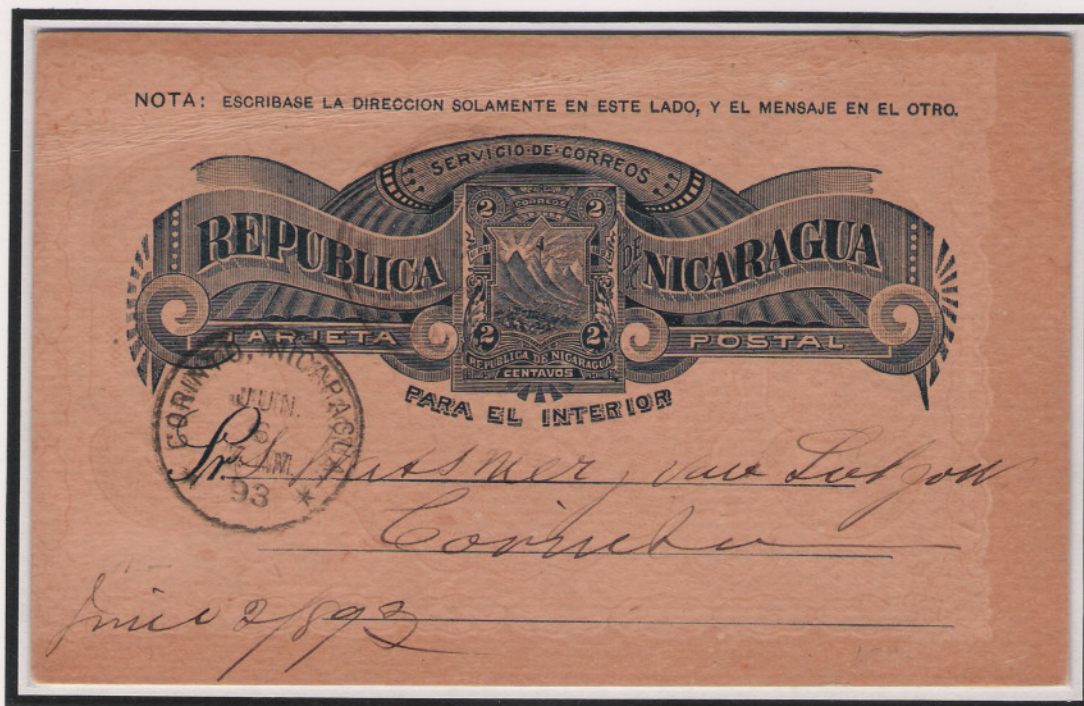 NOTA: ESCRIBASE LA DIRECCION SOLAMENTE EN ESTE LADO, Y EL MENSAJE EN EL OTRO.
SERVICIO·DE·CORREOS
REPUBLICA DE NICARAGUA
2 CORREOS 2
2 2
REPUBLICA DE NICARAGUA
CENTAVOS
TARJETA POSTAL
PARA EL INTERIOR
CORINTO, NICARAGUA
JUN.
6
7 AM.
93
Sr.
Corinto
Junio 2/893